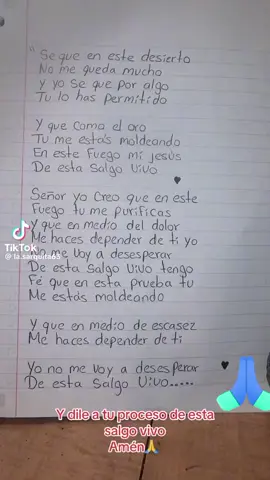 "Se que en este desierto
No me queda mucho
y yo se que por algo
Tu lo has permitido
Y que como el oro
Tu me estás moldeando
En este Fuego mi jesús
De esta salgo vivo
Señor yo creo que en este
Fuego tu me purificas
Y que en medio del dolor
Me haces depender de ti yo
no me voy a desesperar
De esta salgo vivo tengo
Fé que en esta prueba tu
Me estás moldeando
Y que en medio de escasez
Me haces depender de ti
Yo no me voy a desesperar
De esta salgo vivo.....
TikTok
@ta.sarquita63
Y dile a tu proceso de esta
salgo vivo
Amén🙏